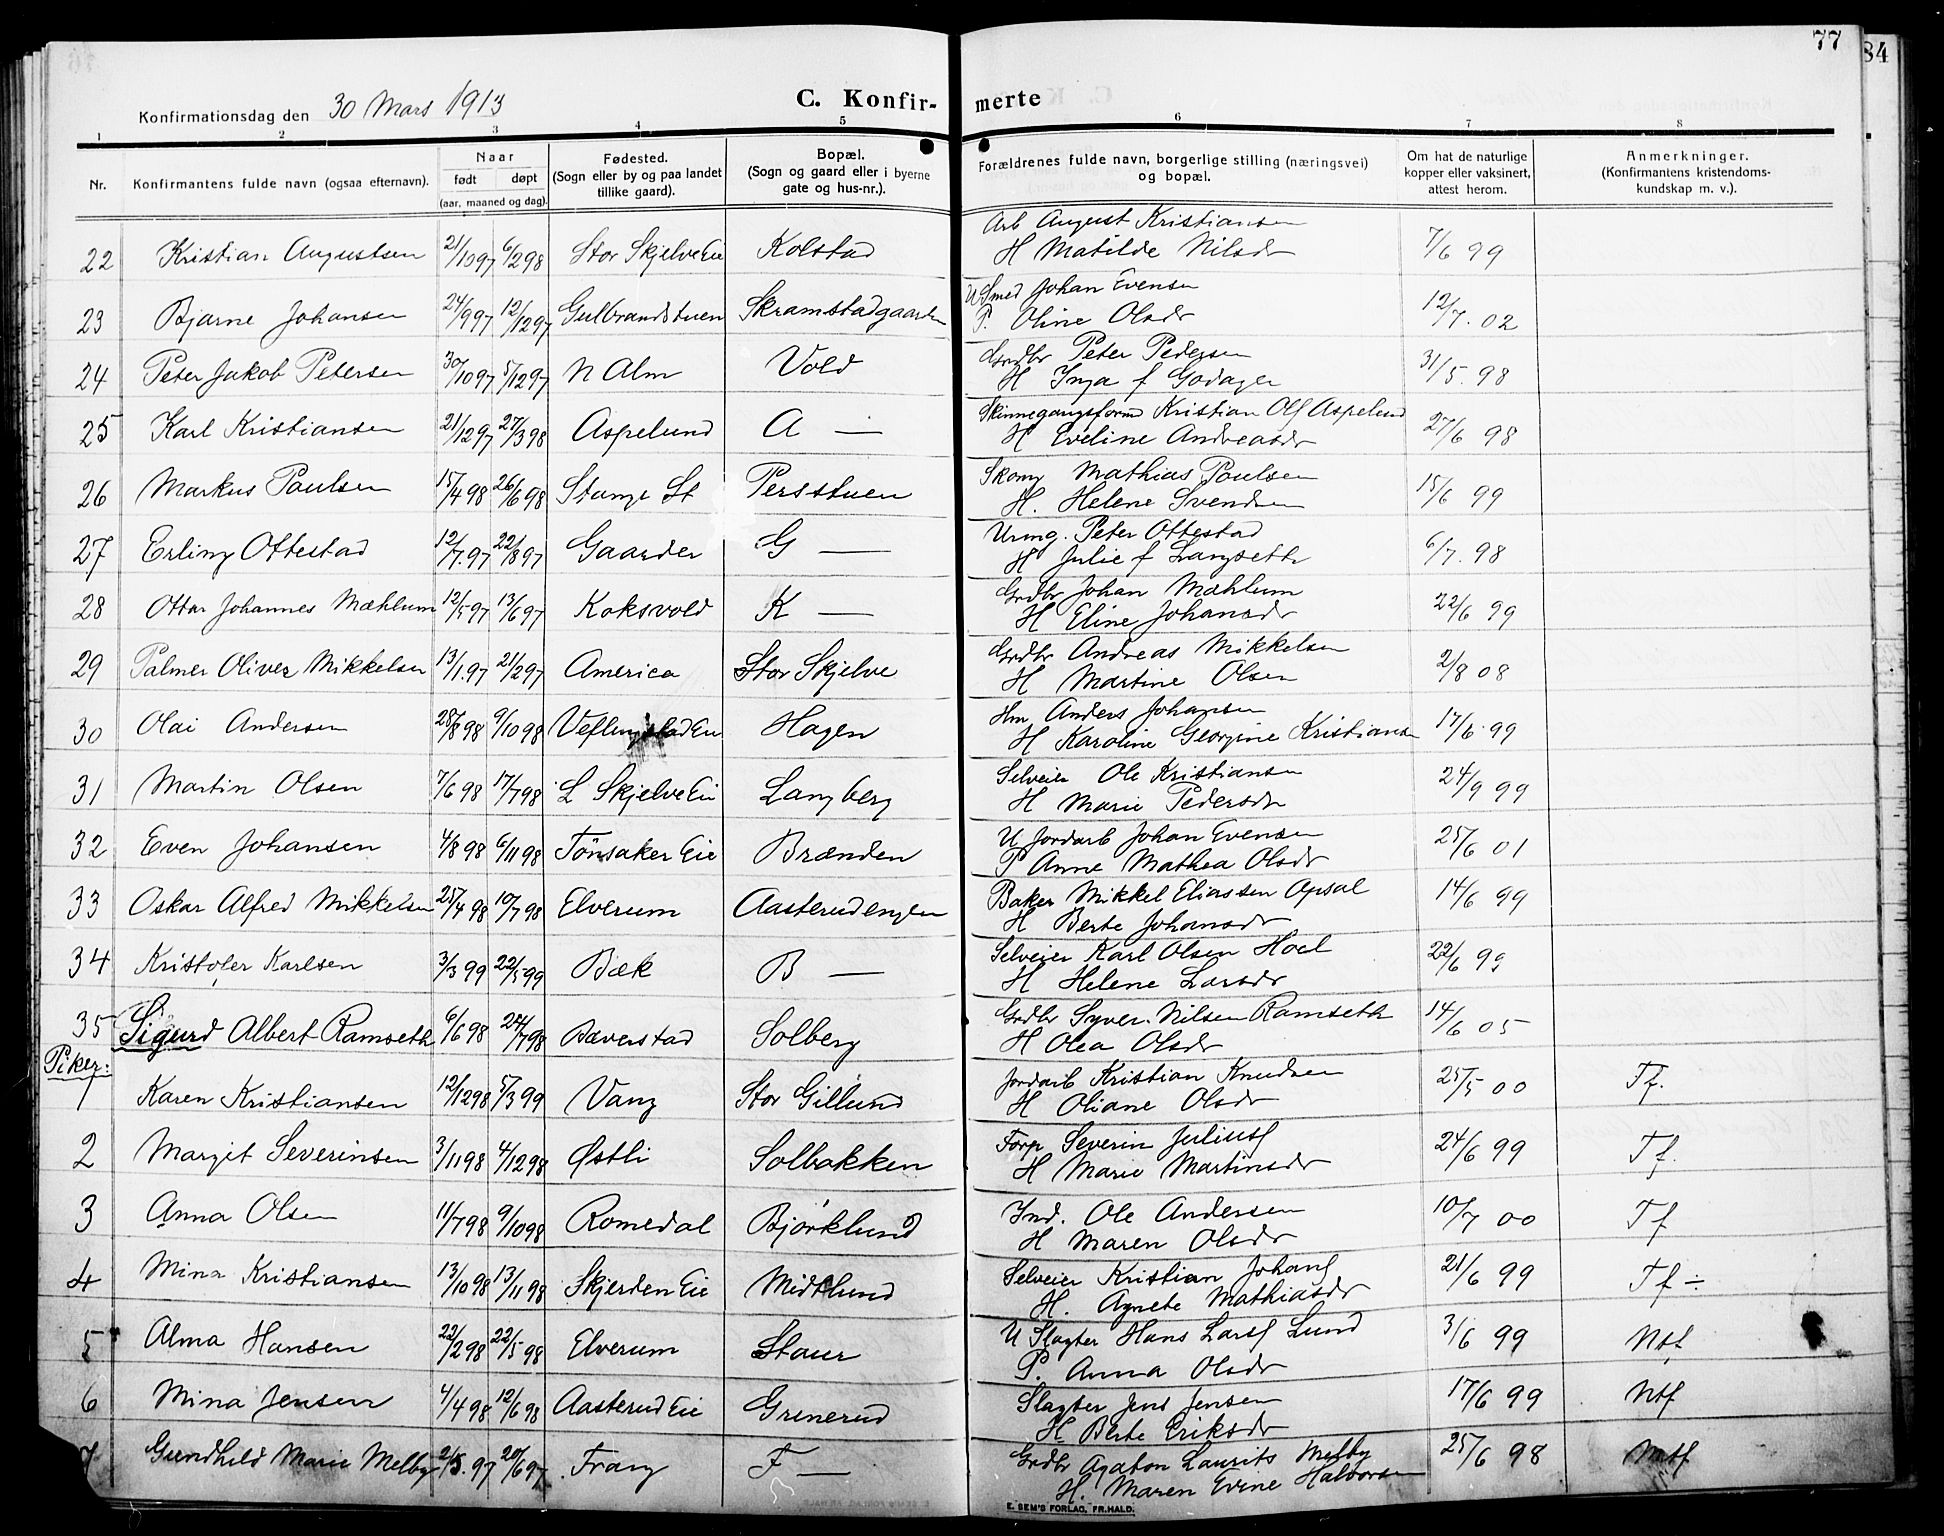 77
84
Konfirmationsdag den 30 Mars 1913
C. Konfir- merte
1 2 3 4 5 6 7 8
Nr.
Konfirmantens fulde navn (ogsaa efternavn).
Naar
født døpt
(aar, maaned og dag).
Fødested.
(Sogn eller by og paa landet
tillike gaard).
Bopæl.
(Sogn og gaard eller i byerne
gate og hus-nr.).
Forældrenes fulde navn, borgerlige stilling (næringsvei)
og bopæl.
Om hat de naturlige
kopper eller vaksinert,
attest herom.
Anmerkninger.
(Konfirmantens kristendoms-
kundskap m. v.).
22 Kristian Augustsen 21/10 97 6/2 98 Stor Skjelve Eie Kolstad Arb August Kristiansen 7/6 99
H Matilde Nilsdr
23 Bjarne Johansen 24/9 97 12/12 97 Gulbrandstuen Skramstadgaarden U Smed Johan Evensen 12/7. 02
P. Oline Olsdr
24 Peter Jakob Petersen 30/10 97 5/12 97 N Alm Vold Grdbr Peter Pedersen 31/5. 98
H Inga f Godager
25 Karl Kristiansen 21/12 97 27/3 98 Aspelund A — Skinnegangsformd Kristian Olf Aspelund 27/6 98
H Eveline Andreasdr
26 Markus Paulsen 15/4 98 26/6 98 Stange St Persstuen Skom Mathias Paulsen 15/6 99
H. Helene Svendsen
27 Erling Ottestad 12/7. 97 22/8 97 Gaarder G — Urmg. Peter Ottestad 6/7. 98
H Julie f Langseth
28 Ottar Johannes Mæhlum 12/5 97 13/6 97 Koksvold K — Grdbr Johan Mæhlum 22/6 99
H Eline Johansdr
29 Palmer Oliver Mikkelsen 13/1. 97 21/2 97 America Stor Skjelve Grdbr Andreas Mikkelsen 2/8 08
H Martine Olsen
30 Olai Andersen 28/8 98 9/10 98 Veflingstad Eie Hagen Hm Anders Johansen 17/6. 99
H Karoline Georgine Kristiansen
31 Martin Olsen 7/6 98 17/7 98 L Skjelve Eie Langberg Selveier Ole Kristiansen 24/9 99
H Marie Pedersdr
32 Even Johansen 4/8 98 6/11 98 Tönsaker Eie Brænden U Jordarb Johan Evensen 25/6 01
P Anne Mathea Olsdr
33 Oskar Alfred Mikkelsen 25/4 98 10/7 98 Elverum Aasterudengen Baker Mikkel Eliassen Opsal 14/6 99
H Berte Johansdr
34 Kristofer Karlsen 3/3 99 22/5 99 Bæk B — Selveier Karl Olsen Hoel 22/6 99
H Helene Larsdr
35 Sigurd Albert Ramseth 6/6 98 24/7 98 Bæverstad Solberg Grdbr Syver Nilsen Ramseth 14/6 05
H Olea Olsdr
Piker:
1 Karen Kristiansen 12/12 98 5/3 99 Vang Stor Gillund Jordarb Kristian Knudsen 25/5 00 Tf.
H Oliane Olsdr
2 Margit Severinsen 3/11 98 4/12 98 Østli Solbakken Forp Severin Juliusf 24/6 99 Tf.
H Marie Martinsdr
3 Anna Olsen 11/7 98 9/10 98 Romedal Bjørklund Ind. Ole Andersen 10/7 00 Tf
H Maren Olsdr
4 Mina Kristiansen 13/10 98 13/11 98 Skjerden Eie Midtlund Selveier Kristian Johanf 21/6 99 Tf ÷
H. Agnete Mathiasdr
5 Alma Hansen 22/2 98 22/5 98 Elverum Staur U Slagter Hans Larsf Lund 3/6 99 Mtf
P. Anna Olsdr
6 Mina Jensen 4/4 98 12/6 98 Aasterud Eie Grinerud Slagter Jens Jensen 17/6 99 Mtf
H Berte Eriksdr
7 Gundhild Marie Melby 2/5. 97 20/6 97 Frang F — Grdbr Agaton Laurits Melby 25/6 98 Mtf
H. Maren Evine Halvorsen
E. SEM'S FORLAG, FR.HALD.